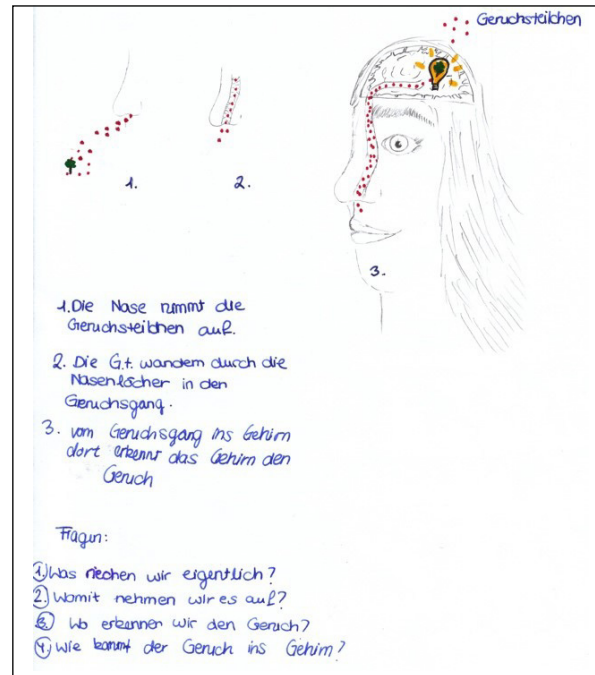 Geruchsteilchen
1.
2.
3.
1. Die Nase nimmt die
Geruchsteilchen auf.
2. Die G.t. wandern durch die
Nasenlöcher in den
Geruchsgang.
3. vom Geruchsgang ins Gehirn
dort erkennt das Gehirn den
Geruch
Fragen:
1. Was riechen wir eigentlich?
2. Womit nehmen wir es auf?
3. Wo erkennen wir den Geruch?
4. Wie kommt der Geruch ins Gehirn?